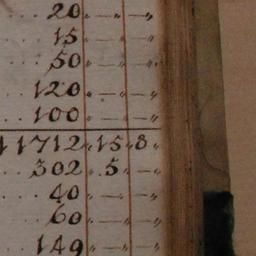 20 „ — „ — „
15 „ — „ — „
50 „ — „ — „
120 „ — „ — „
100 „ — „ — „
11712 „ 15 „ 8 „
302 „ 5 „ — „
40 „ — „ — „
60 „ — „ — „
149 „ — „ — „